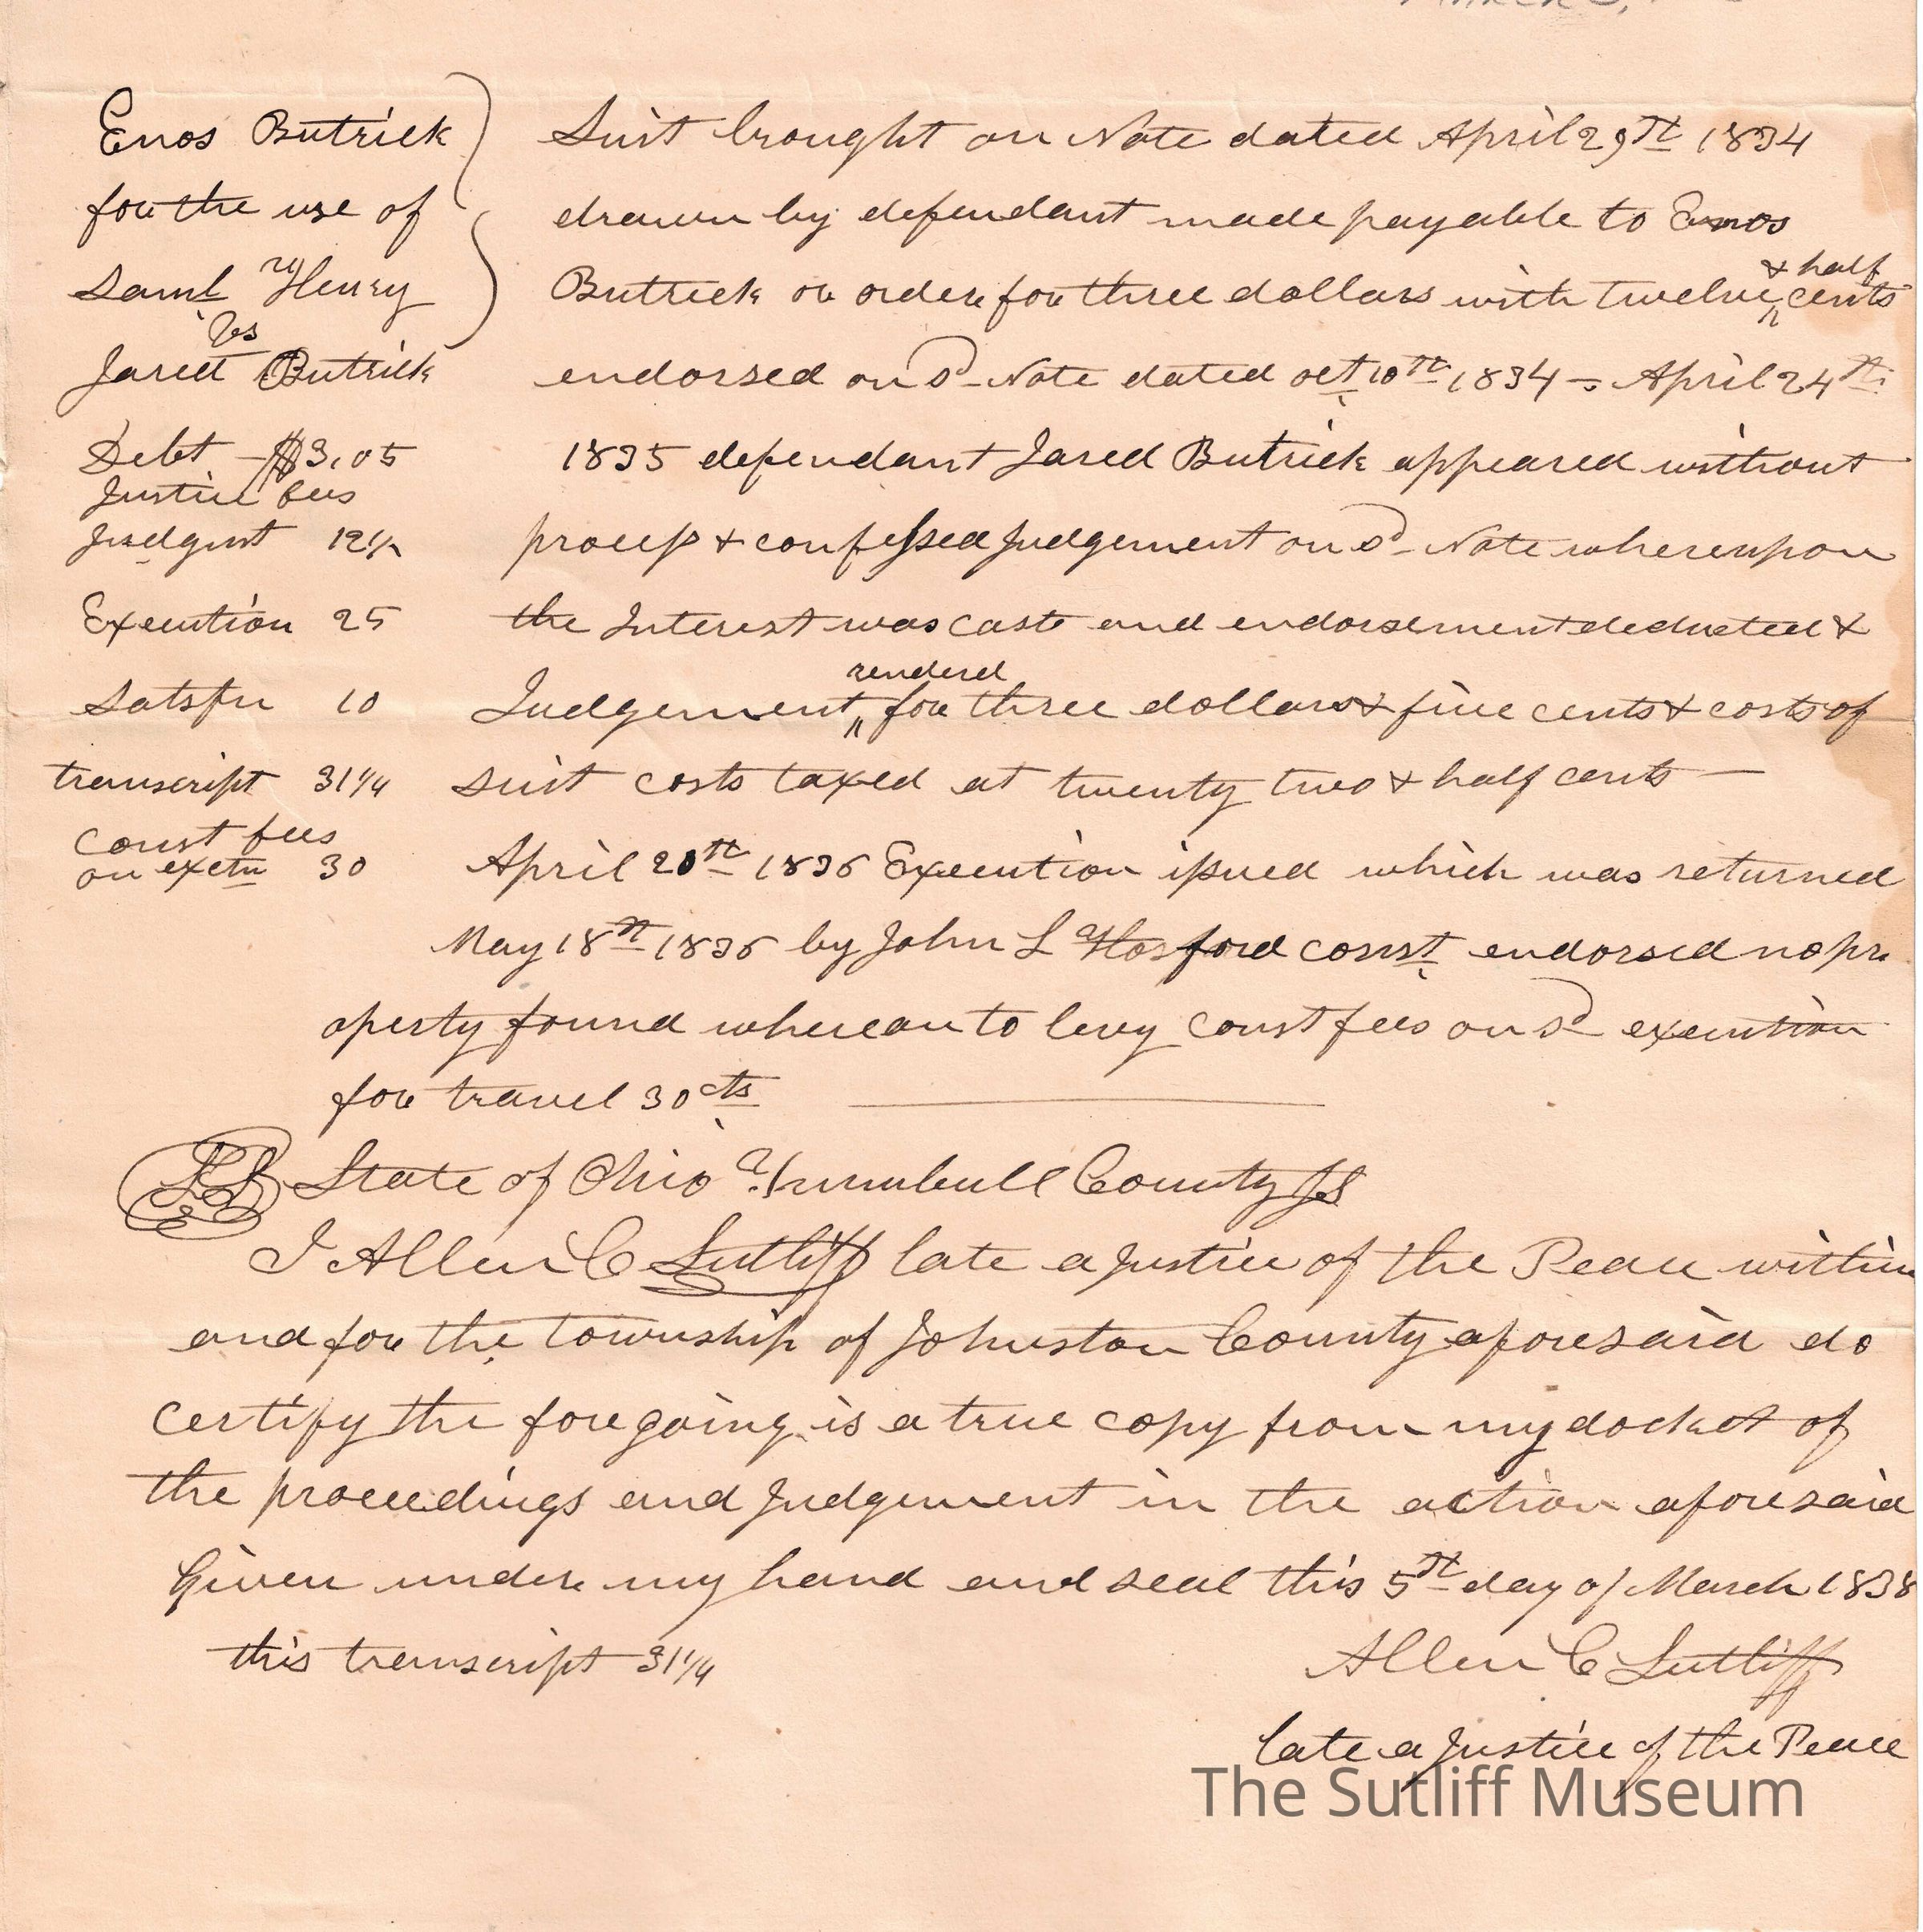 Enos Butrick
for the use of
Saml Henry
vs
Jared Butrick
Debt - $3,05
Justice fees
Judgmt 12½
Execution 25
Satsfn 10
transcript 31¼
Const fees
on exetn 30
Suit brought on Note dated April 29th 1834
drawn by defendant made payable to Enos
Butrick or order for three dollars with twelve & half cents
endorsed on sd Note dated oct 10th 1834 - April 24th
1835 defendant Jared Butrick appeared without
process & confessed Judgement on sd Note whereupon
the Interest was caste and endorsement deducted &
Judgement renderd for three dollars & five cents & costs of
suit costs taxed at twenty two & half cents -
April 20th 1836 Execution issued which was returned
May 18th 1836 by John L Hosford const endorsed no pr
operty found whereon to levy const fees on sd execution
for travel 30 cts
State of Ohio Trumbull County SS
I Allen C Sutliff late a Justice of the Peace within
and for the township of Johnston County aforesaid do
certify the foregoing is a true copy from my docket of
the proceedings and Judgement in the action aforesaid
Given under my hand and seal this 5th day of March 1838
this transcript 31¼
Allen C Sutliff
late a Justice of the Peace
The Sutliff Museum